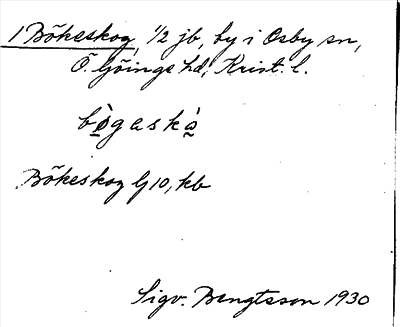 1 Bökeskog, 1/2 jb, by i Osby sn,
Ö. Göinge hd, Krist. l.
bø̀gaskà̱
Bökeskog G 10, kb
Sigv. Bengtsson 1930